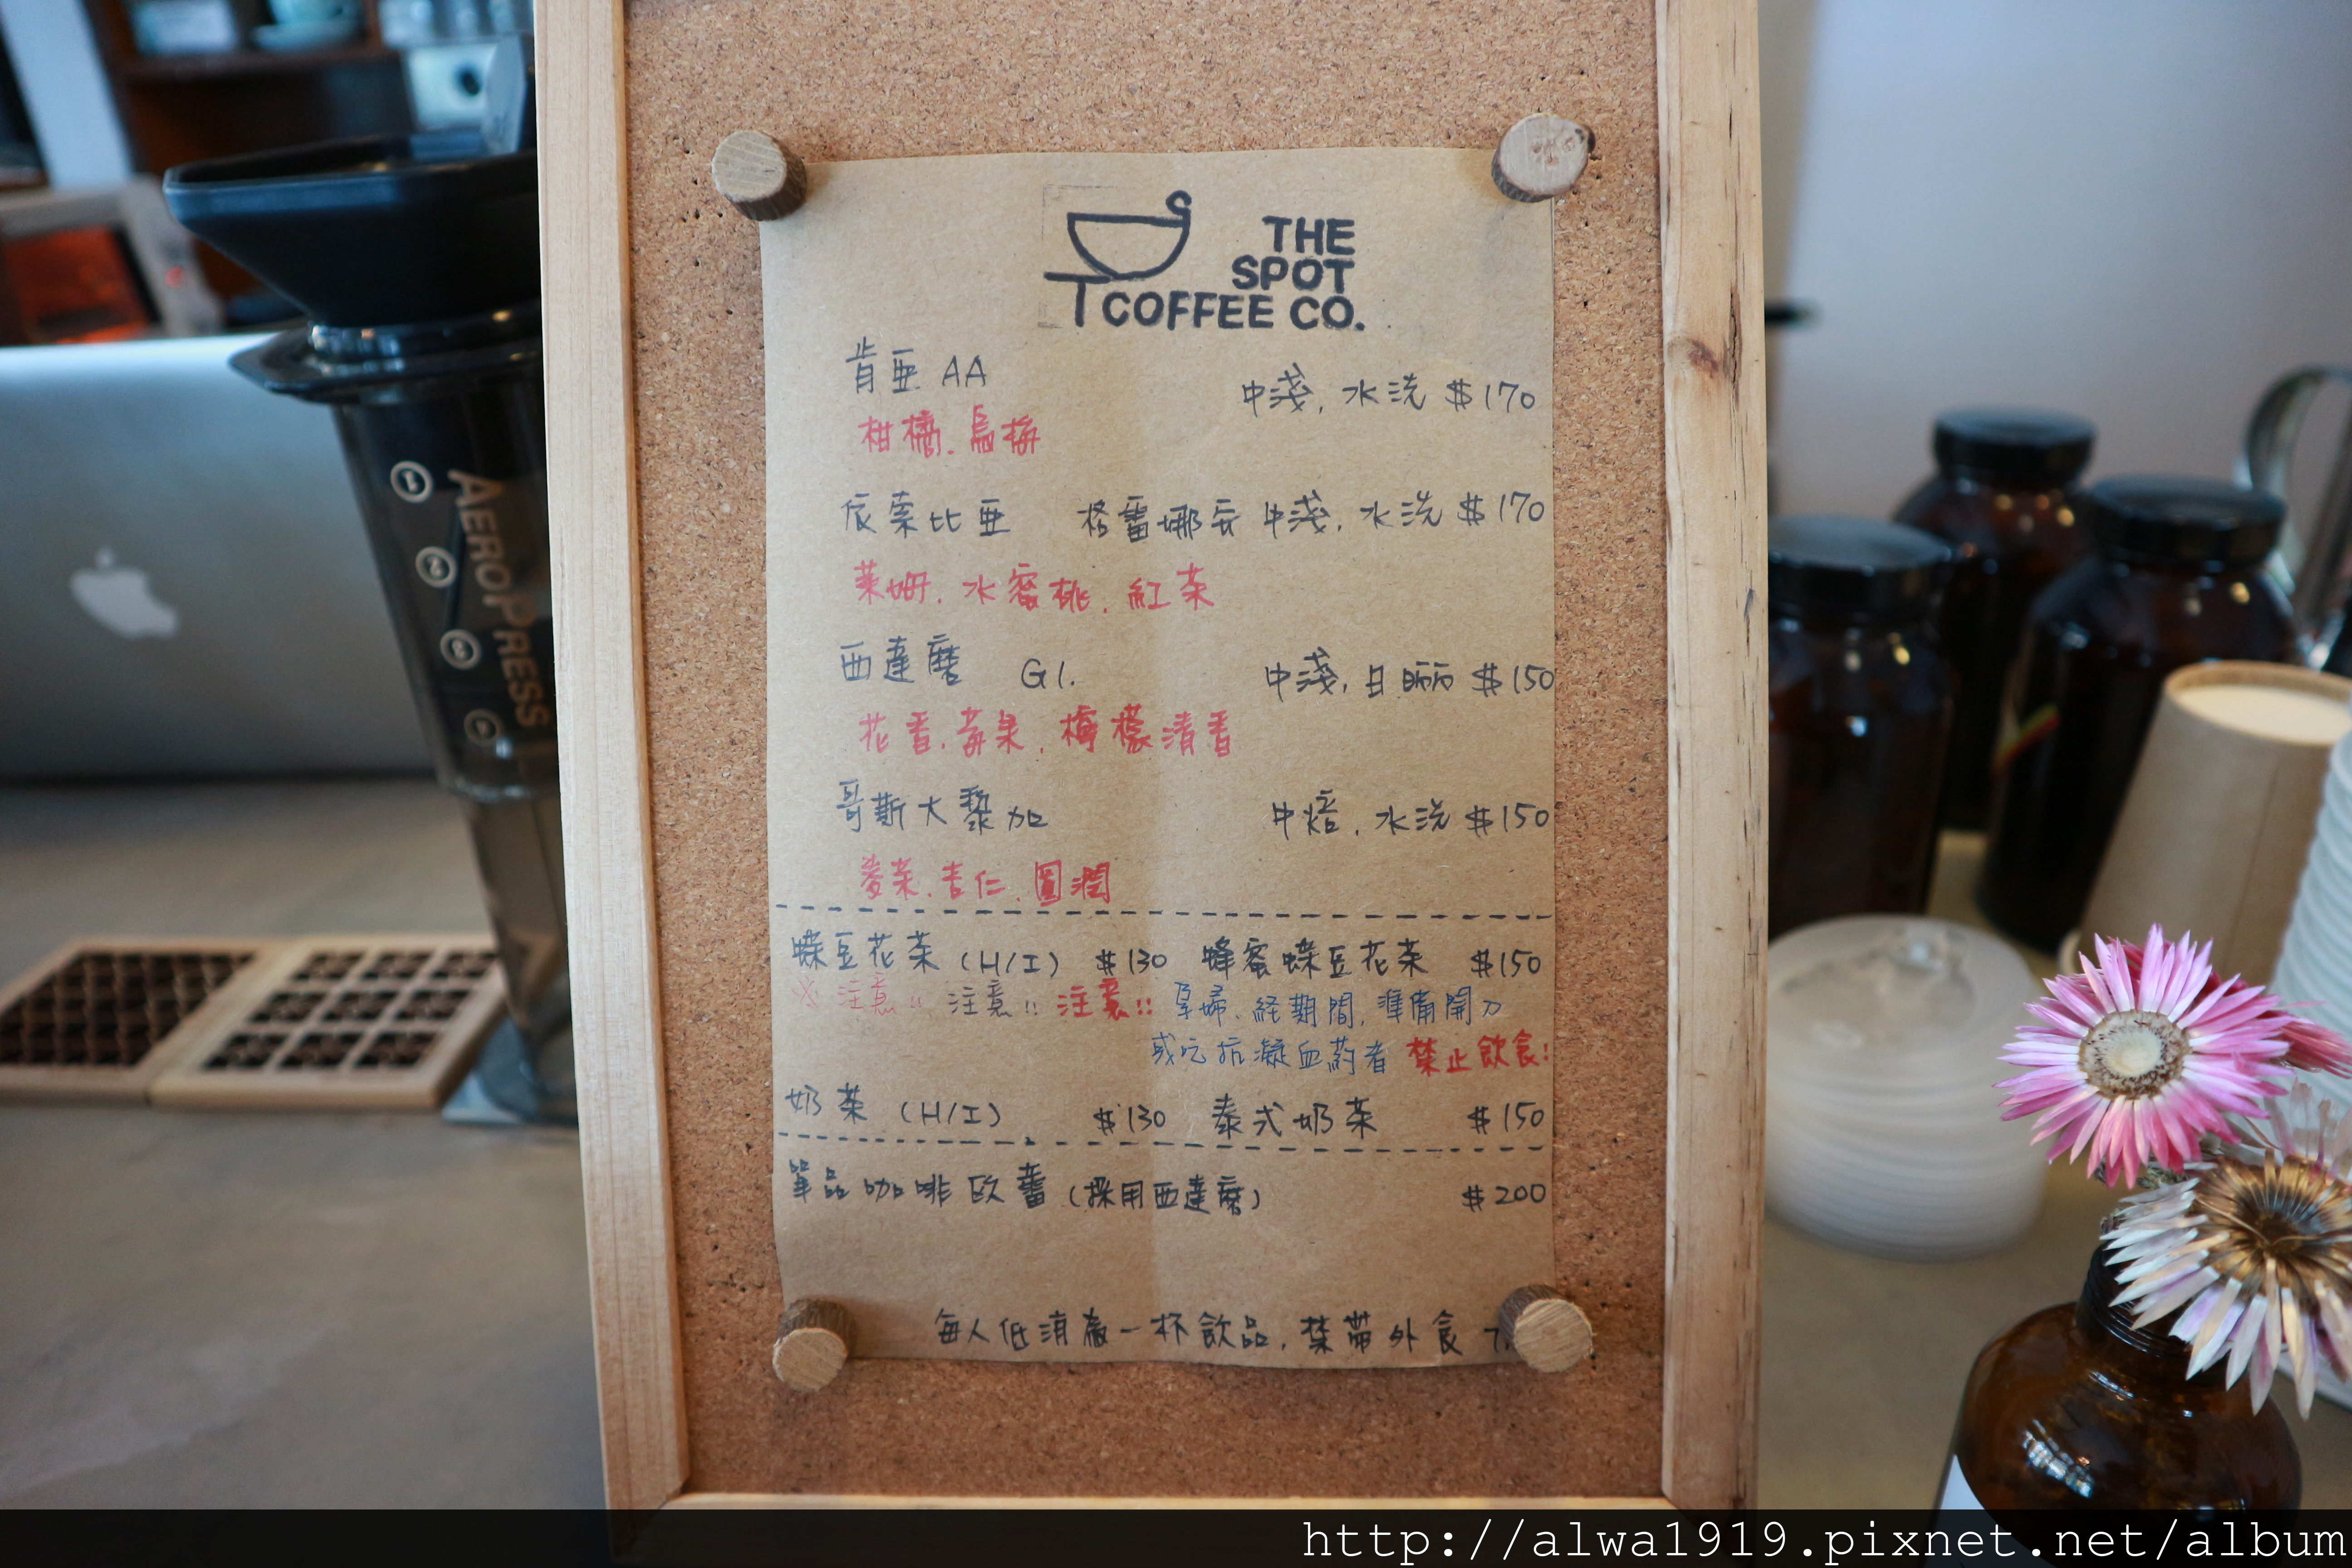 THE
SPOT
COFFEE CO.
肯亜 AA 中淺, 水洗 $170
柑橘. 烏梅
依索比亜 格雷娜安 中淺, 水洗 $170
萊姆. 水蜜桃. 紅茶
西達摩 G1. 中淺, 日晒 $150
花香. 莓果. 檸檬清香
哥斯大黎加 中焙. 水洗 $150
麥茶. 杏仁. 圓潤
蝶豆花茶 (H/I) $130 蜂蜜蝶豆花茶 $150
※ 注意!! 注意!! 注意!! 孕婦. 経期間, 準備開刀
或吃抗凝血葯者 禁止飲食!
奶茶 (H/I) $130 泰式奶茶 $150
單品咖啡欧蕾 (採用西達摩) $200
每人低消為一杯飲品, 禁帶外食
AEROPRESS
1
2
3
4
http://alwa1919.pixnet.net/album